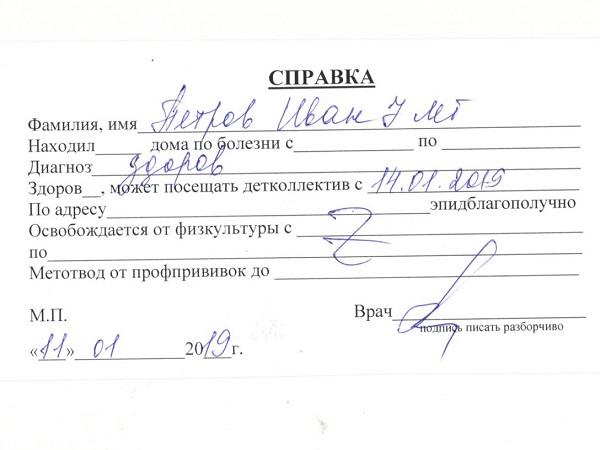 СПРАВКА
Фамилия, имя Петров Иван 7 лет
Находил______ дома по болезни с_______________ по _______________
Диагноз здоров
Здоров__, может посещать детколлектив с 14.01.2019
По адресу___________________________________эпидблагополучно
Освобождается от физкультуры с Z
по______________________________________________________
Метотвод от профпрививок до _______________________________
М.П.
Врач____________________
подпись писать разборчиво
«11» 01 2019г.